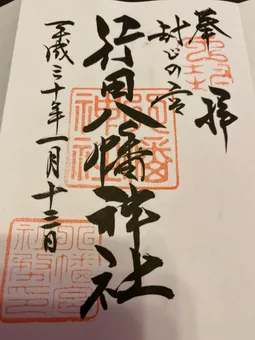 奉拝
封じの宮
行田八幡神社
平成三十年一月十三日